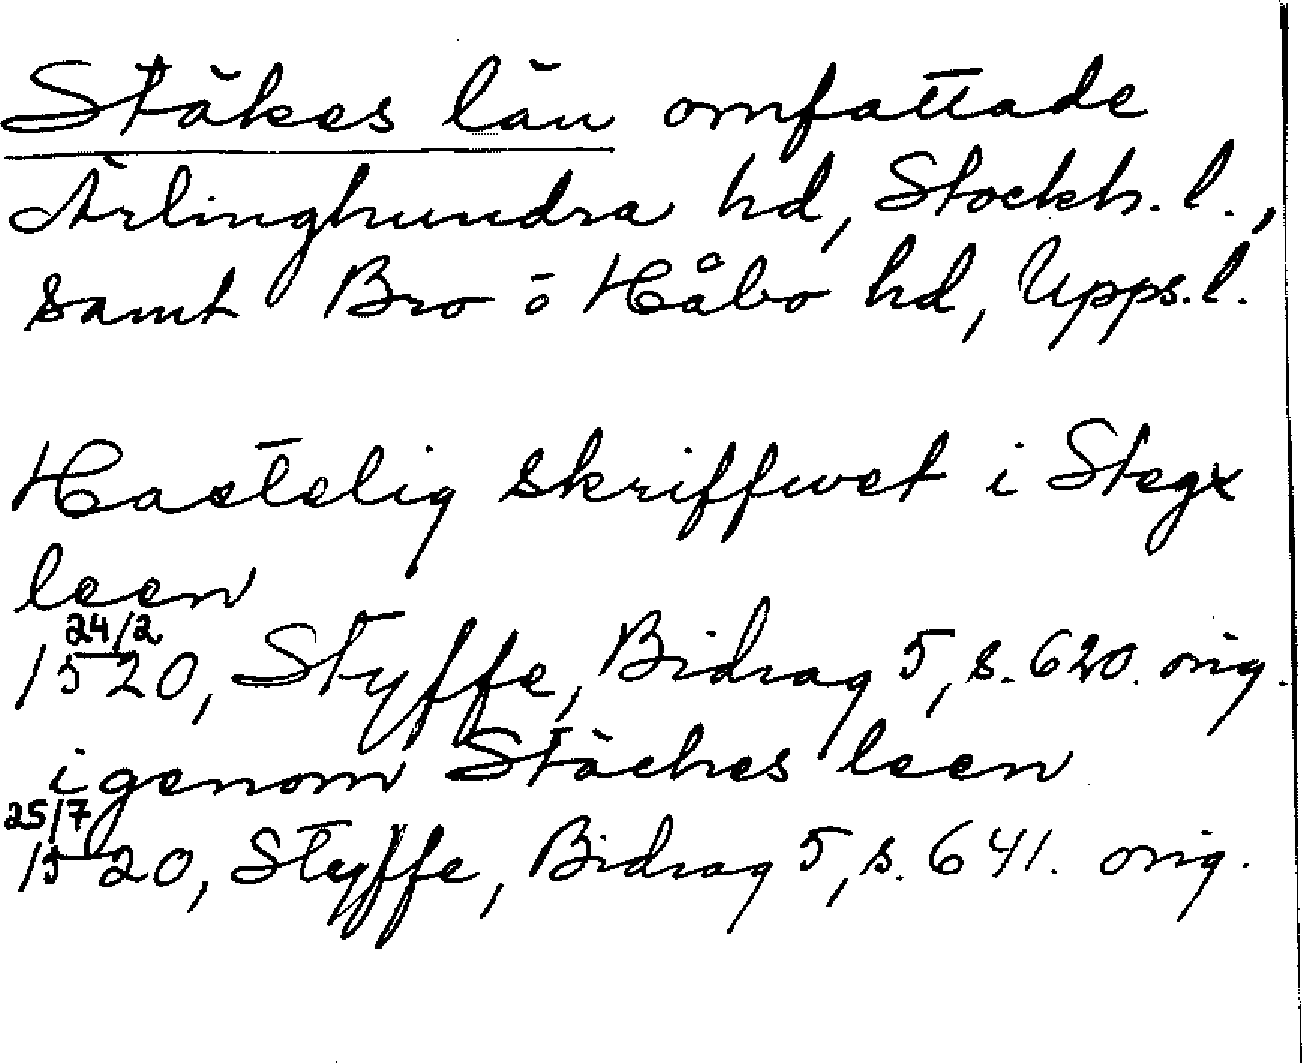 Stäkes län omfattade
Ärlinghundra hd, Stockh. l.,
samt Bro o Håbo hd, Upps. l.
Hastelig skriffwet i Stegx
leen
24/2
1520, Styffe, Bidrag 5, s. 620. orig.
igenom Stäches leen
25/7
1520, Styffe, Bidrag 5, s. 641. orig.